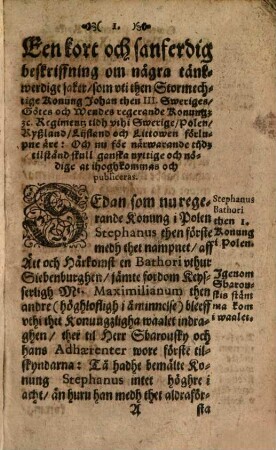 1.
Een kort och sanferdig
beskriffning om några tänk-
werdige saker / som vti then Stormech-
tige Konung Johan then III. Sweriges /
Götes och Wendes regerande Konungz
ꝛc. Regimentz tijdh vthi Swerige / Polen /
Ryßland / Lijfland och Littowen förlup-
ne äre: Och nu för närwarande tijdz
tilstånd skull ganska nyttige och nö-
dige at ihoghkommas och
publiceras.
SEdan som nu rege-
rande Konung i Polen
Stephanus then förste
medh thet nampnet / aff
Ätt och Härkomst en Bathori vthur
Siebenburghen / sämte fordom Keys-
serligh Mtt. Maximilianum then
andre (höghlofligh i åminnelse) bleeff
vthi thet Konungzligha waalet indra-
ghen / ther til Herr Sbarousky och
hans Adhærenter wore förste til-
skyndarna: Tå hadhe bemälte Ko-
nung Stephanus intet höghre i
acht / än huru han medh thet aldraför-
A sta
Stephanus
Bathori
then 1.
Konung
i Polen.
Igenom
Sbarou-
skis stäm-
kom
i waalet.